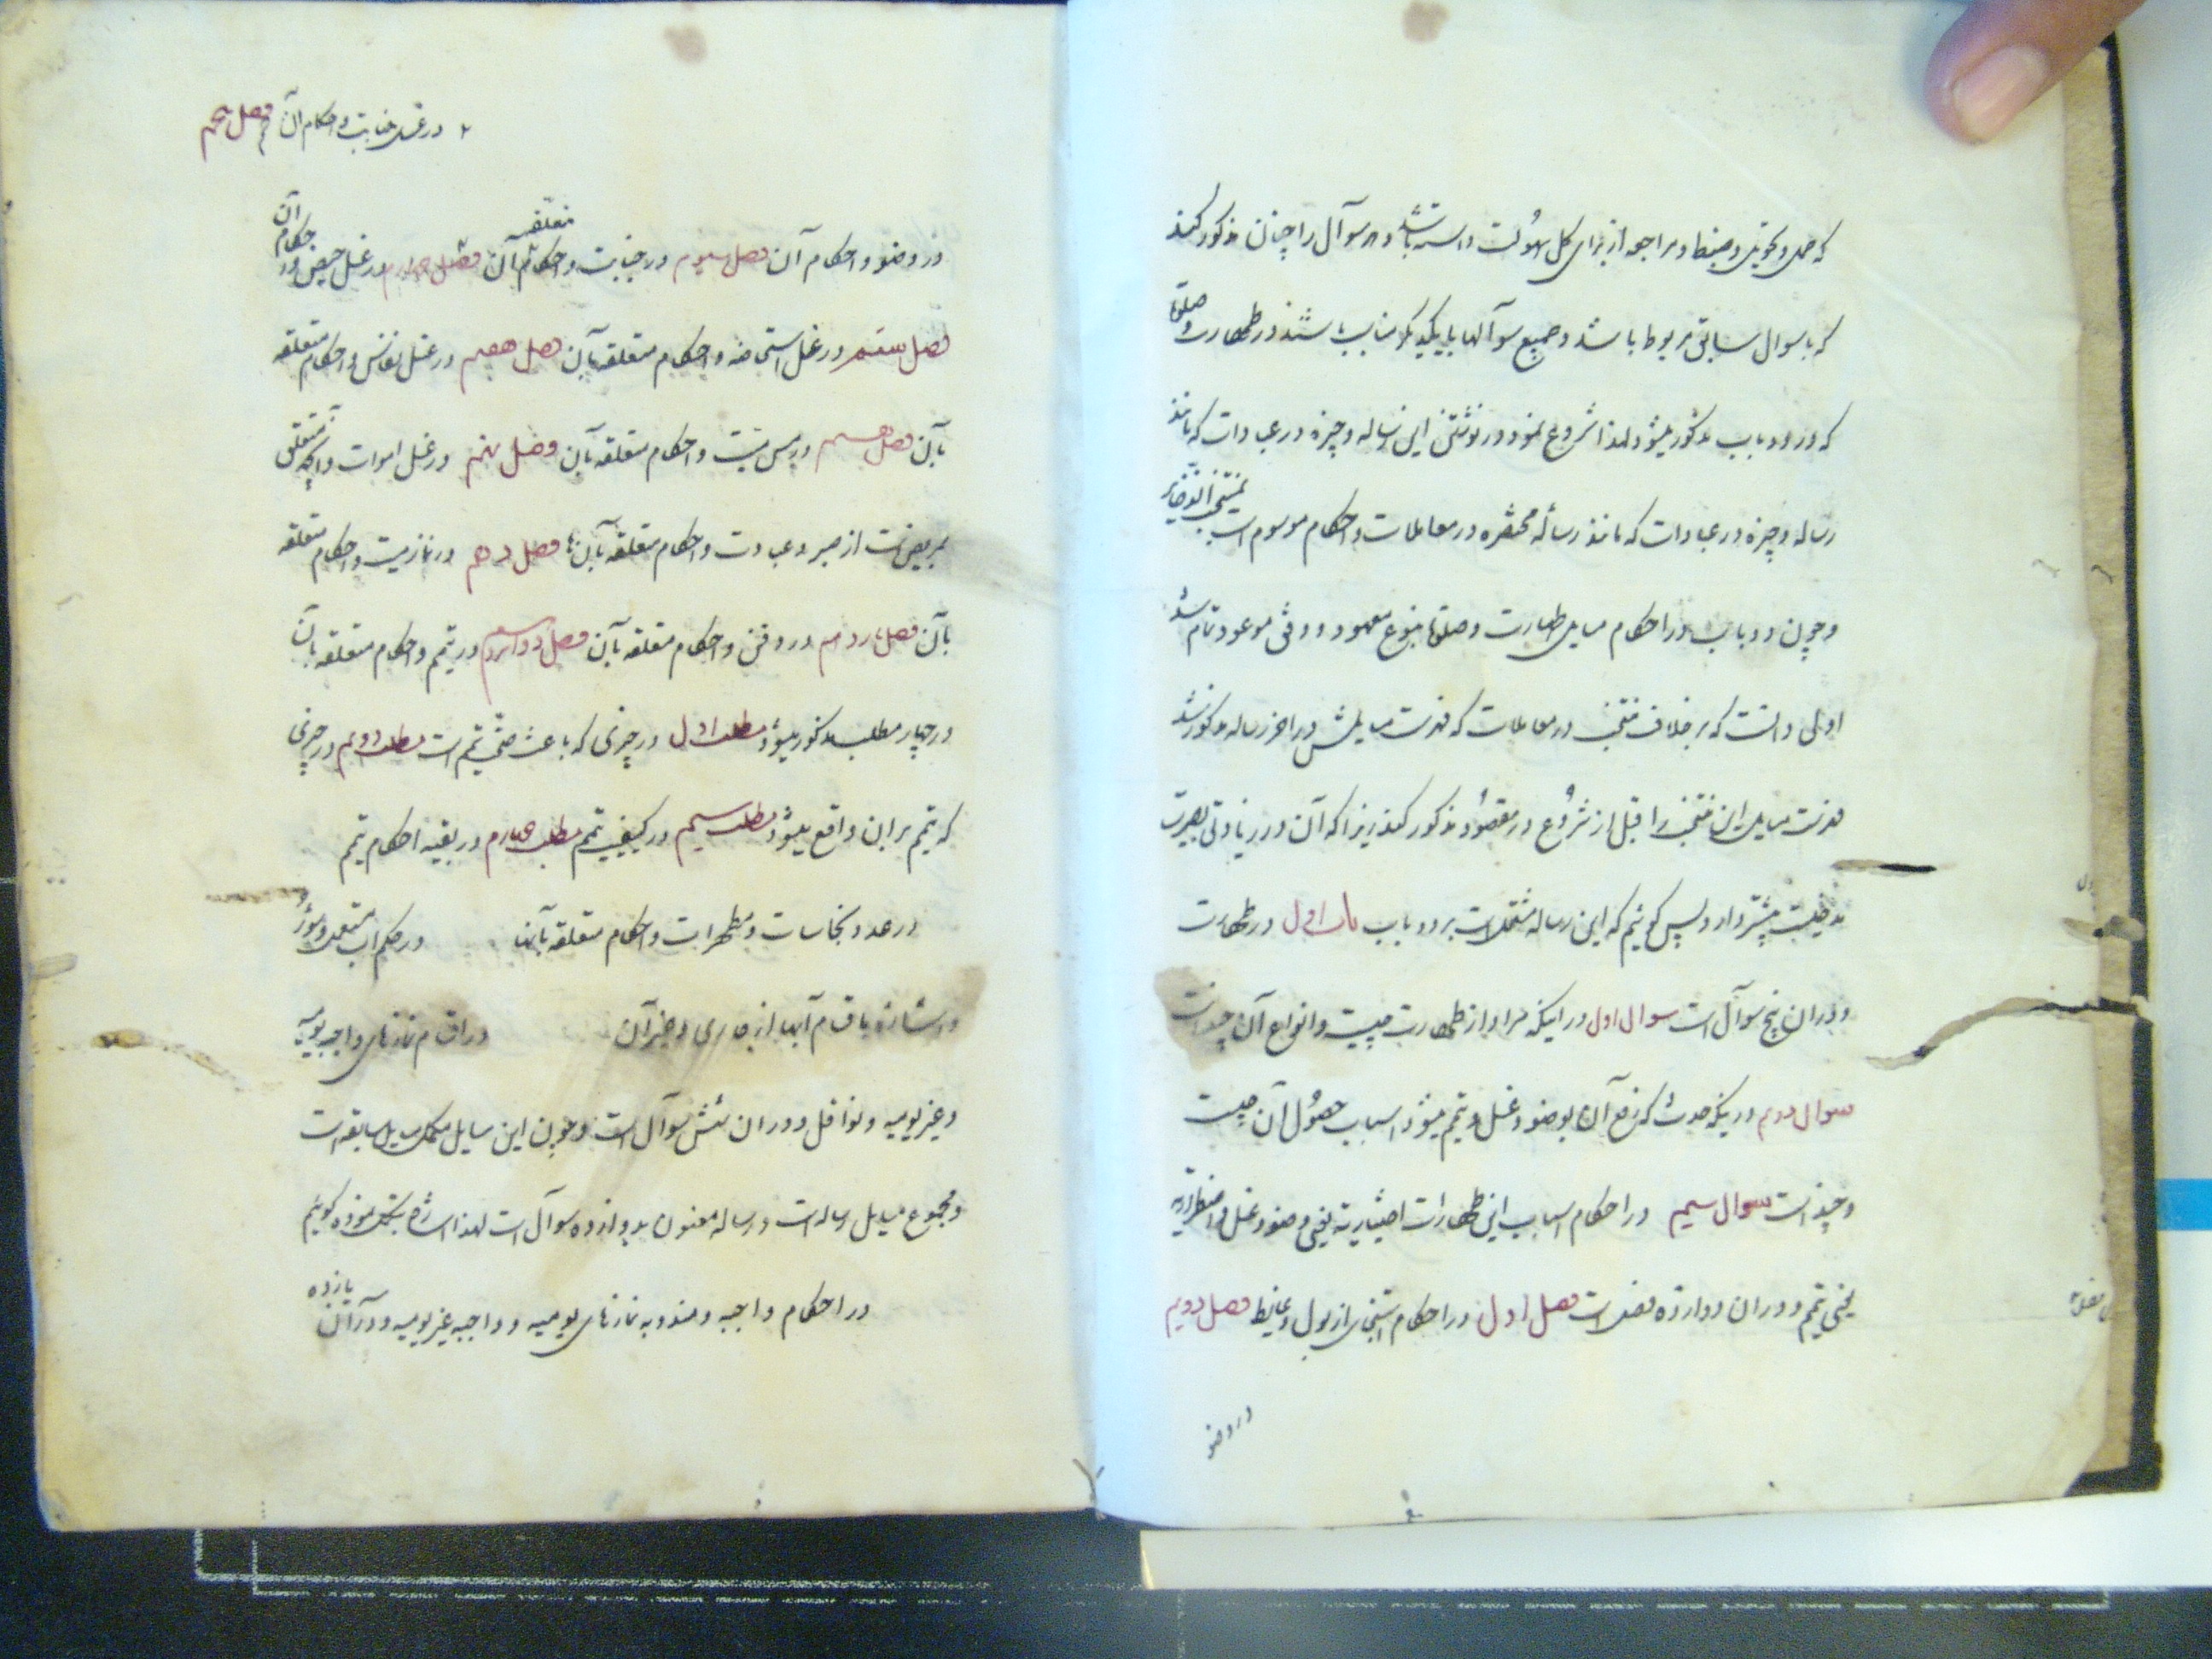 که حمل و تحویل و ضبط و مراجعه از برای کل سهولت داشته باشد و هر سوآل را چنان مذکور کند
که با سوال سابق مربوط باشد و جمیع سوآلها با یکدیگر مناسب باشند در طهارت و صلوة
که در دو باب مذکور میشود لهذا شروع نمود در نوشتن این رساله وجیزه در عبادات که مانند
رساله وجیزه در عبادات که مانند رسالهٔ مختصره در معاملات و احکام موسوم است بمنتخب
و چون دو باب در احکام مسایل طهارت و صلوة بنوع معهود و وفق موعود تمام شد
اولی دانست که بر خلاف منتخب در معاملات که فهرست مسایلش در اخر رساله مذکور شد
فهرست مسایل این منتخب را قبل از شروع در مقصود مذکور کند زیرا که آن در زیادتی بصیرت
مدخلیت بیشتر دارد پس گوئیم که این رساله مشتمل است بر دو باب باب اول در طهارت
و دران پنج سوآل است سوال اول در اینکه مراد از طهارت چیست و انواع آن چند است
سوال دویم در اینکه حدث که رفع آن بوضو و غسل و تیمم میشود اسباب حصول آن چیست
و چند است سوال سیم در احکام اسباب این طهارات اختیاریه یعنی وضو و غسل و اضطراریه
یعنی تیمم و دران دوازده فصل است فصل اول در احکام استنجای از بول و غایط فصل دویم
در وضو
در غسل جنابت و احکام آن فصل پنجم
در وضو و احکام آن فصل سیوم در جنابت و احکام متعلقه بآن فصل چهارم در غسل حیض و احکام آن
فصل ششم در غسل استحاضه و احکام متعلقه بآن فصل هفتم در غسل نفاس و احکام متعلقه
بآن فصل هشتم در مس میت و احکام متعلقه بآن فصل نهم در غسل اموات و آنچه متعلق
بمریض است از صبر و عیادت و احکام متعلقه بآنها فصل دهم در نماز میت و احکام متعلقه
بآن فصل یازدهم در دفن و احکام متعلقه بآن فصل دوازدهم در تیمم و احکام متعلقه بآن
در چهار مطلب مذکور میشود مطلب اول در چیزی که باعث صحت تیمم است مطلب دویم در چیزی
که تیمم بر ان واقع میشود مطلب سیم در کیفیت تیمم مطلب چهارم در بقیه احکام تیمم
در عدد نجاسات و مطهرات و احکام متعلقه بآنها در حکم آب مستعمل و سؤر
و اشاره باقسام آبها از جاری و غیر آن در اقسام نمازهای واجبه یومیه
و غیر یومیه و نوافل و دران شش سوآل است و چون این مسایل مکمل مسایل سابقه است
و مجموع مسایل رساله است و رساله معنون بدوازده سوآل است لهذا اشاره نموده گوئیم
در احکام واجبه و مندوبه نمازهای یومیه و واجبه غیر یومیه و در آن یازده